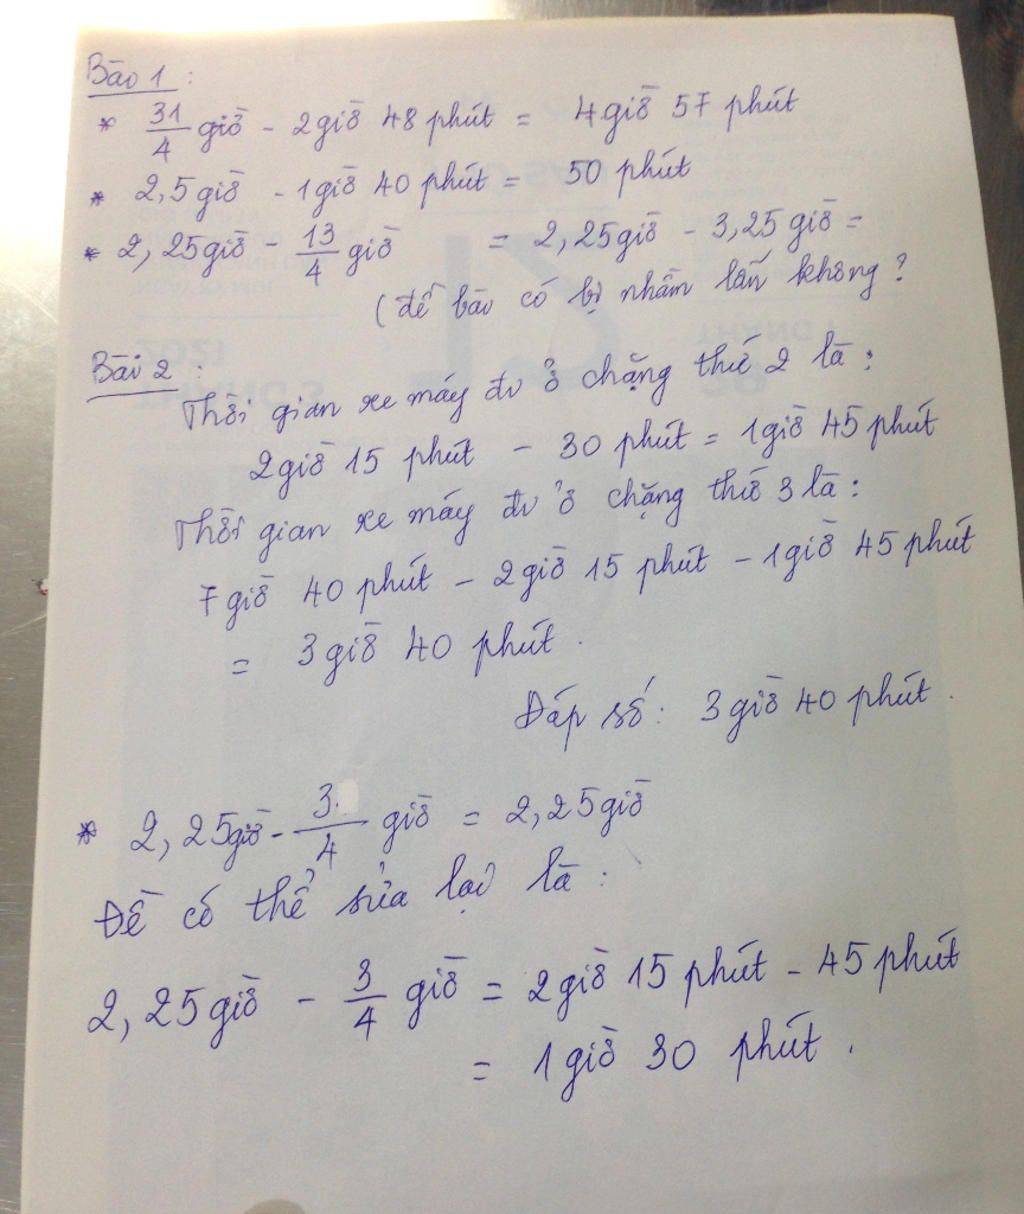 Bài 1 :
* 31/4 giờ - 2 giờ 48 phút = 4 giờ 57 phút
* 2,5 giờ - 1 giờ 40 phút = 50 phút
* 2,25 giờ - 13/4 giờ = 2,25 giờ - 3,25 giờ =
(đề bài có bị nhầm lẫn không ?
Bài 2 :
Thời gian xe máy đi ở chặng thứ 2 là :
2 giờ 15 phút - 30 phút = 1 giờ 45 phút
Thời gian xe máy đi ở chặng thứ 3 là :
7 giờ 40 phút - 2 giờ 15 phút - 1 giờ 45 phút
= 3 giờ 40 phút .
Đáp số : 3 giờ 40 phút .
* 2,25 giờ - 3/4 giờ = 2,25 giờ
Đề có thể sửa lại là :
2,25 giờ - 3/4 giờ = 2 giờ 15 phút - 45 phút
= 1 giờ 30 phút .